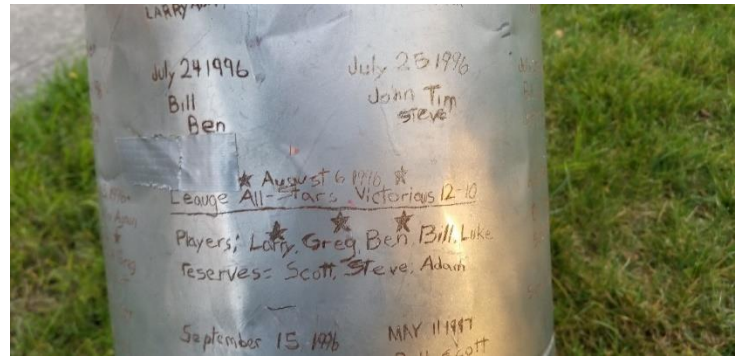 LARRY
July 24 1996
Bill
Ben
July 25 1996
John Tim
Steve
August 6 1996
Leauge All-Stars Victorious 12-10
Players; Larry, Greg, Ben, Bill, Luke
reserves= Scott, Steve, Adam
September 15 1996
MAY 11 1997
Scott